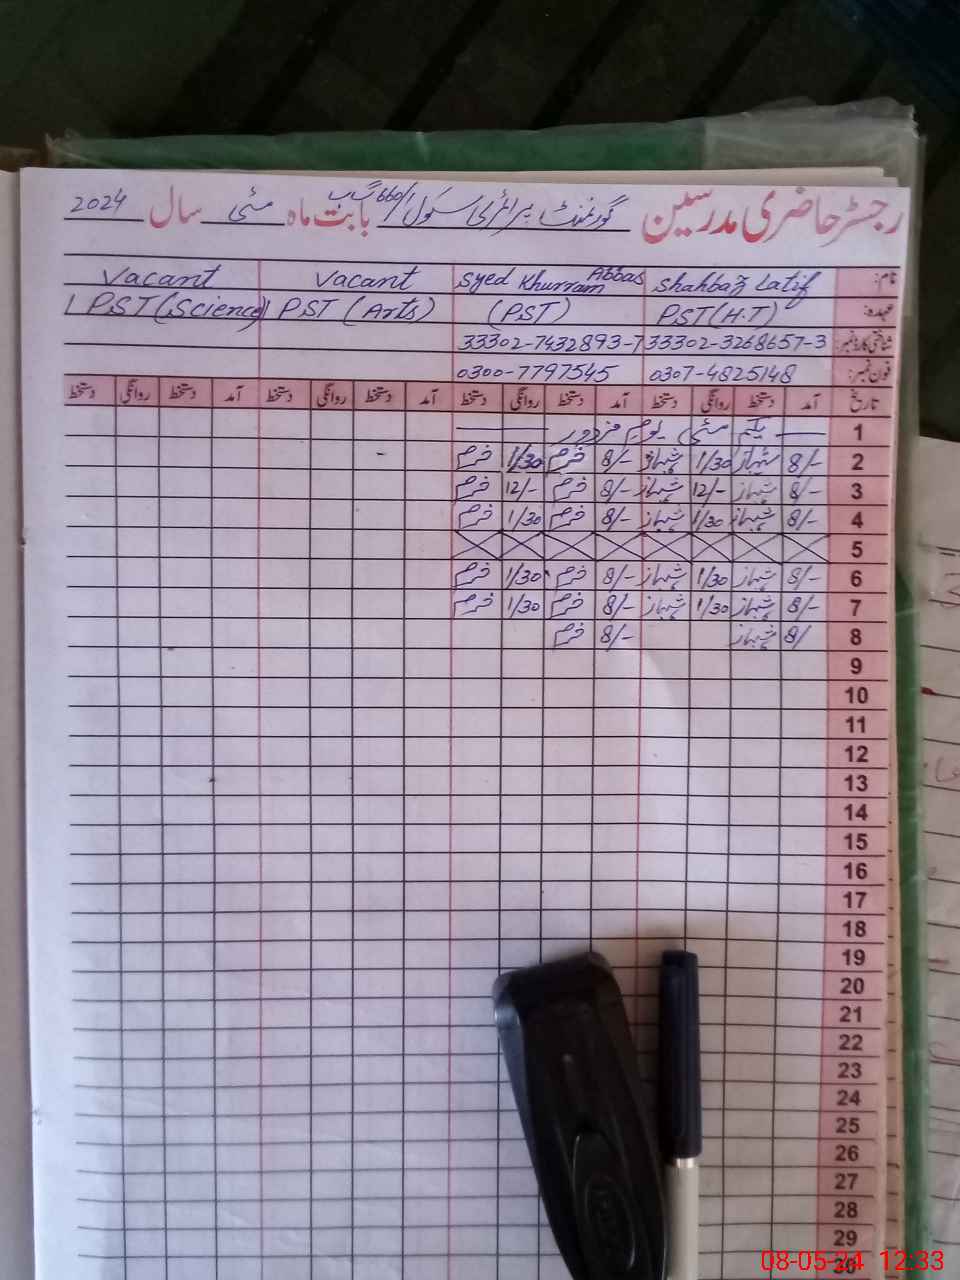 رجسٹر حاضری مدرسین گورنمنٹ پرائمری سکول 660/گ ب بابت ماہ مئی سال 2024
نام: Shahbaz Latif Syed Khurram Abbas Vacant Vacant
عہدہ: PST(H.T) (PST) PST (Arts) PST (Science)
شناختی کارڈ نمبر: 33302-3268657-3 33302-7432893-7
فون نمبر: 0307-4825148 0300-7797545
تاریخ آمد دستخط روانگی دستخط آمد دستخط روانگی دستخط آمد دستخط روانگی دستخط آمد دستخط روانگی دستخط
1 یکم مئی یوم مزدور
2 8/- شہباز 1/30 شہباز 8/- خرم 1/30 خرم
3 8/- شہباز 12/- شہباز 8/- خرم 12/- خرم
4 8/- شہباز 1/30 شہباز 8/- خرم 1/30 خرم
5
6 8/- شہباز 1/30 شہباز 8/- خرم 1/30 خرم
7 8/- شہباز 1/30 شہباز 8/- خرم 1/30 خرم
8 8/ شہباز 8/- خرم
9
10
11
12
13
14
15
16
17
18
19
20
21
22
23
24
25
26
27
28
29
30
08-05-24 12:33